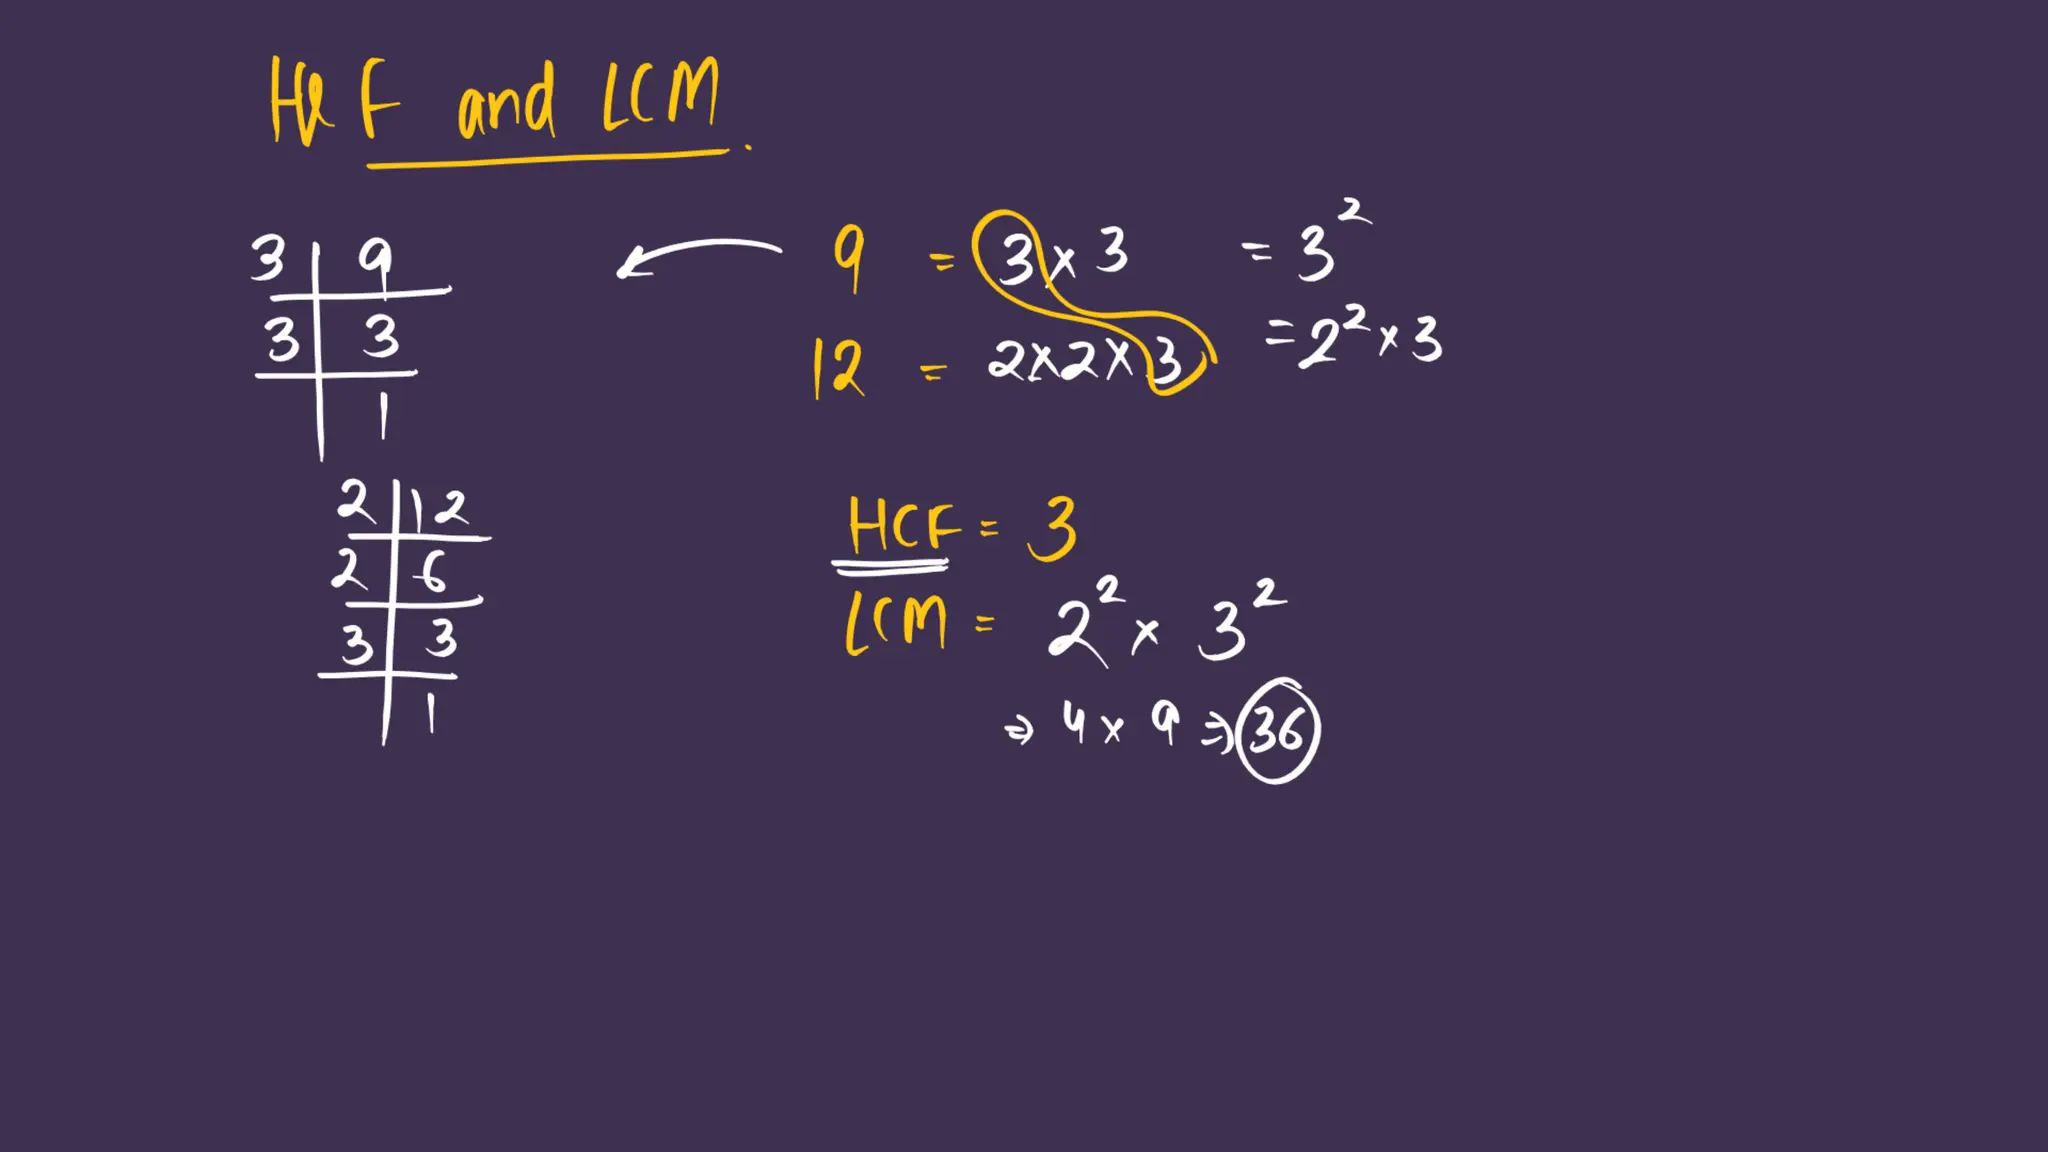 HCF and LCM.
3 | 9
3 | 3
1
2 | 12
2 | 6
3 | 3
1
9 = 3 × 3 = 3²
12 = 2 × 2 × 3 = 2² × 3
HCF = 3
LCM = 2² × 3²
⇒ 4 × 9 ⇒ 36